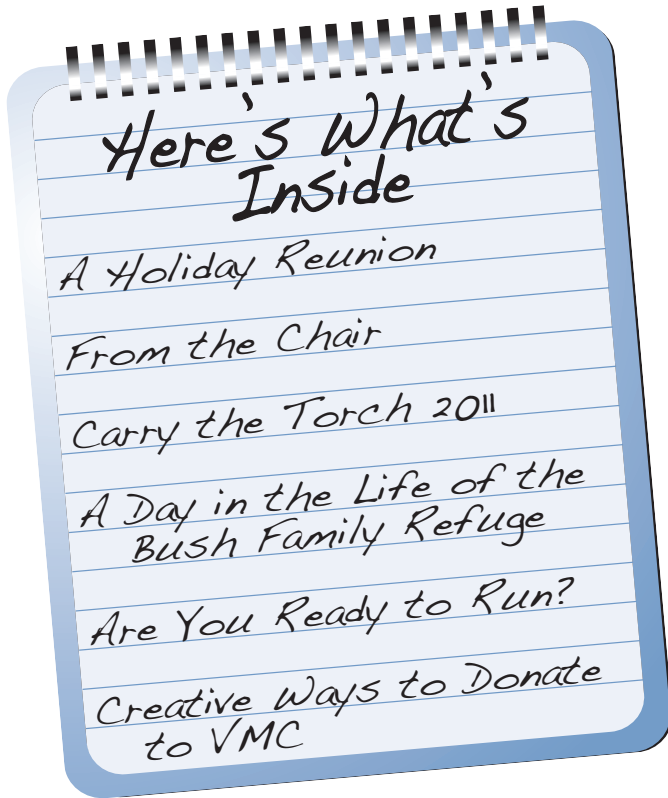 Here's What's
Inside
A Holiday Reunion
From the Chair
Carry the Torch 2011
A Day in the Life of the
Bush Family Refuge
Are You Ready to Run?
Creative Ways to Donate
to VMC